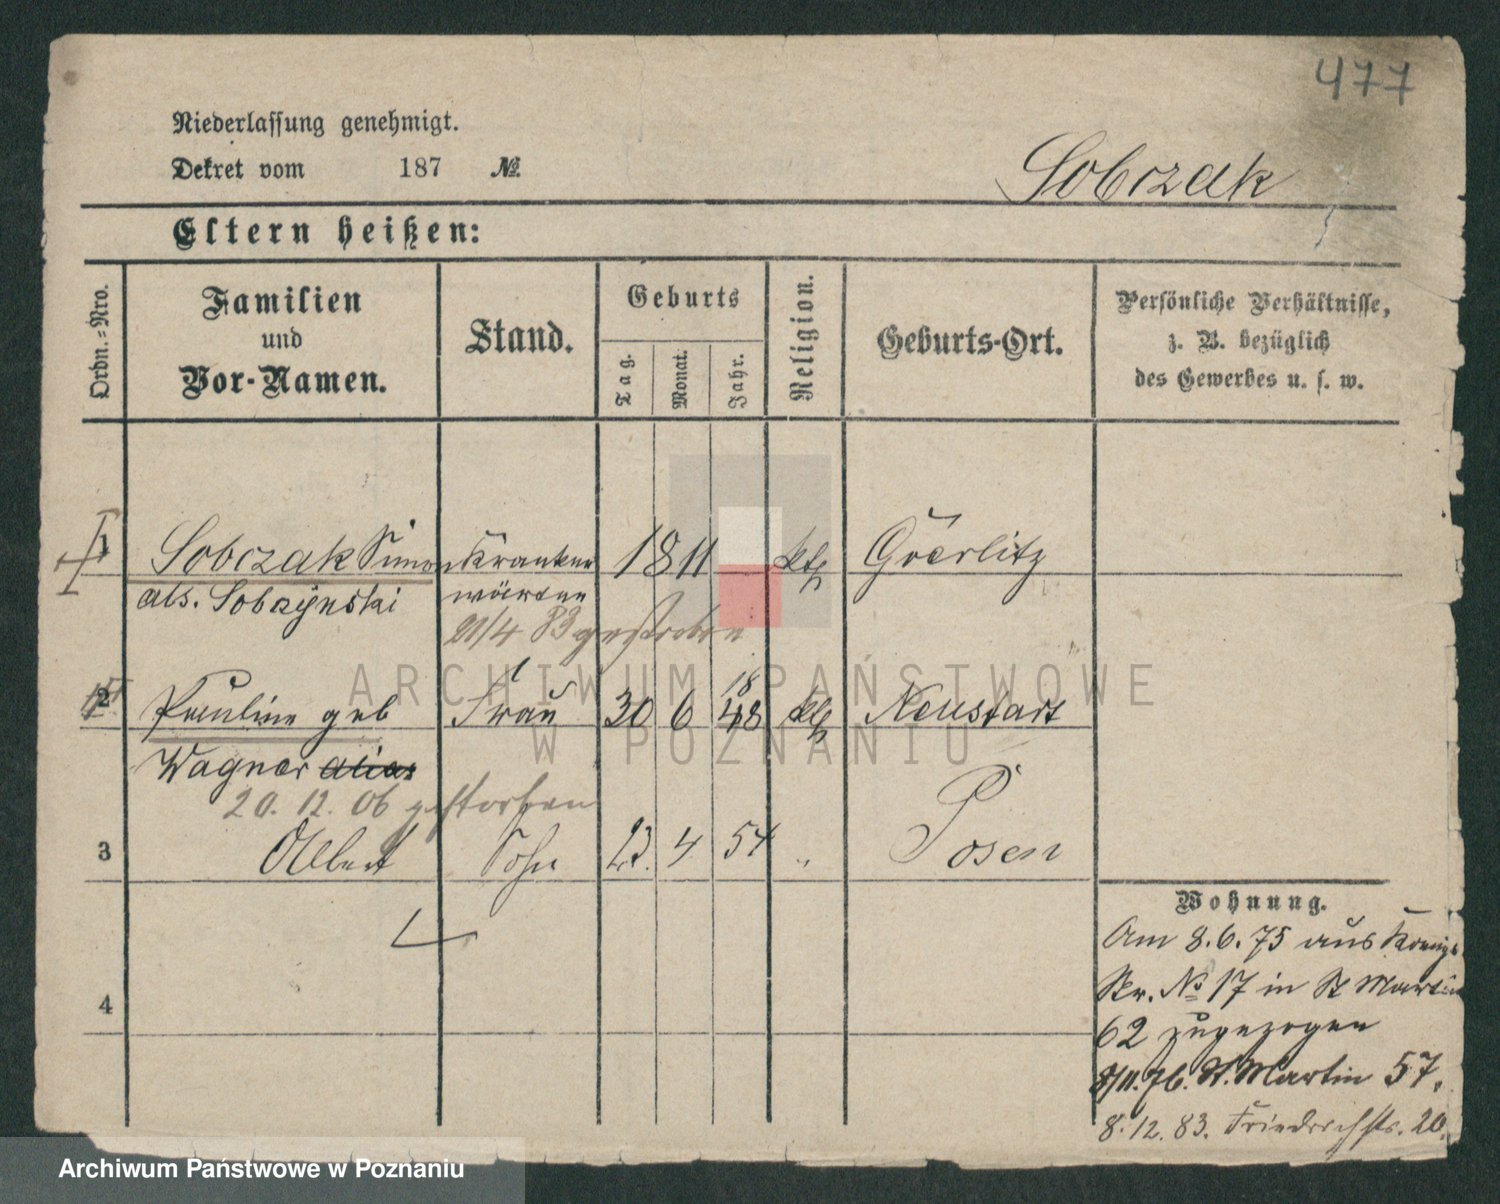 477
Niederlassung genehmigt.
Dekret vom 187 №
Sobczak
Eltern heißen:
Ordn.-Nro.
Familien
und
Vor-Namen.
Stand.
Geburts
Tag.
Monat.
Jahr.
Religion.
Geburts-Ort.
Persönliche Verhältnisse,
z. B. bezüglich
des Gewerbes u. s. w.
1 Sobczak Simon Kranken 1811 kth Goerlitz
als. Sobzynski wärter
21/4 83 gestorben
18
2 Pauline geb Frau 30 6 48 kth Neustadt
Wagner alias
20. 12. 06 gestorben
3 Albert Sohn 23. 4 54 " Posen
4
Wohnung.
Am 8.6.75 aus Königs
Str. № 17 in St Martin
62 zugezogen
8/11.76. St. Martin 57.
8.12.83. Friedrichstr. 20.
ARCHIWUM PAŃSTWOWE
W POZNANIU
Archiwum Państwowe w Poznaniu